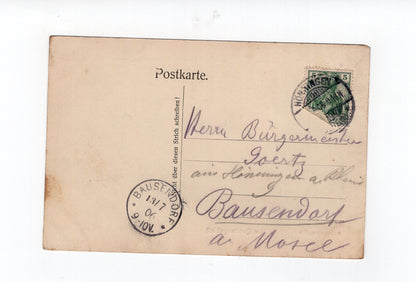 Postkarte.
5
HÖNNINGEN
Herrn Bürgermeister
Goertz
aus Hönningen a. Rhein
Bausendorf
a. Mosel
BAUSENDORF
13/7
06
9-10V.
über diesen Strich schreiben!